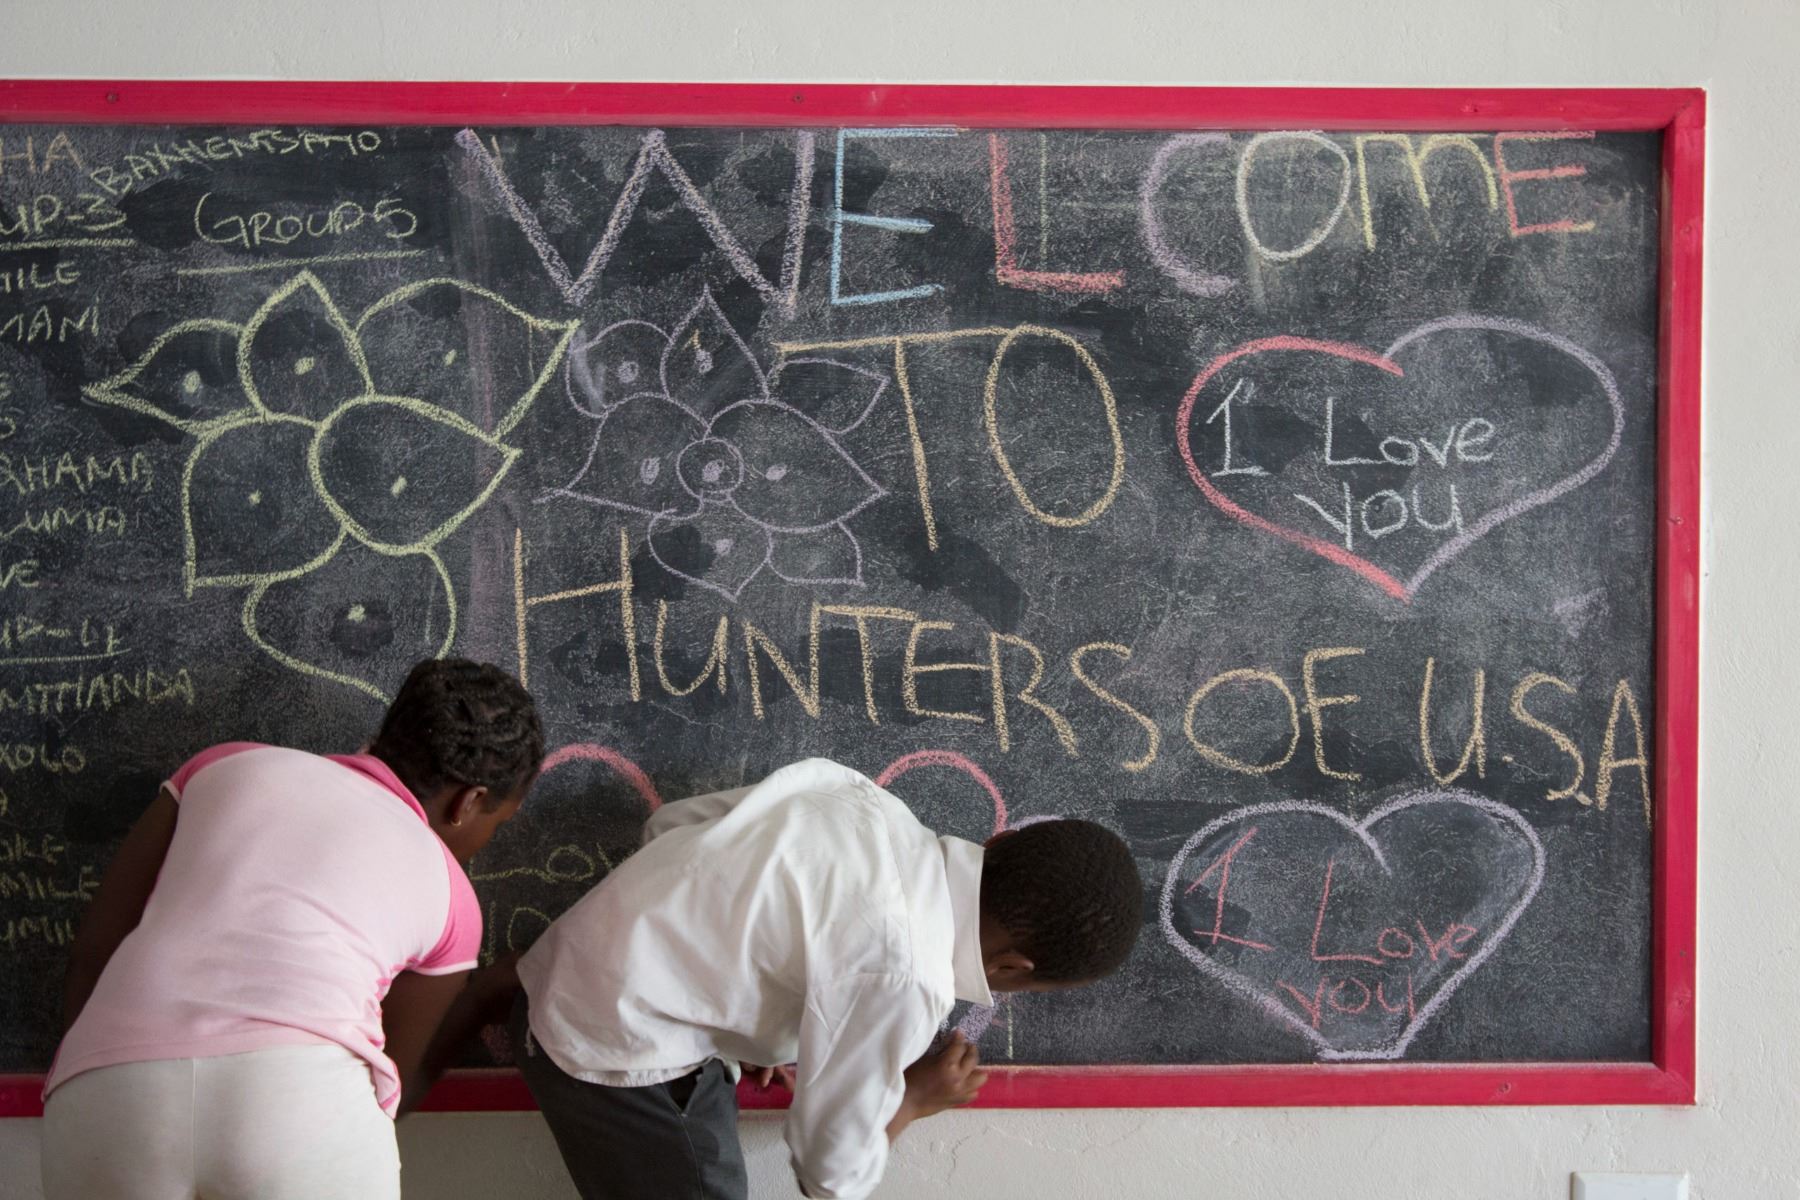 HA
BAKHENSATO
UP-3
GROUP5
MILE
MANI
RHAMA
LUMA
VE
UP-4
MTHANDA
XOLO
MILE
WELCOME
TO
HUNTERS OF U.S.A
I Love
you
I Love
you